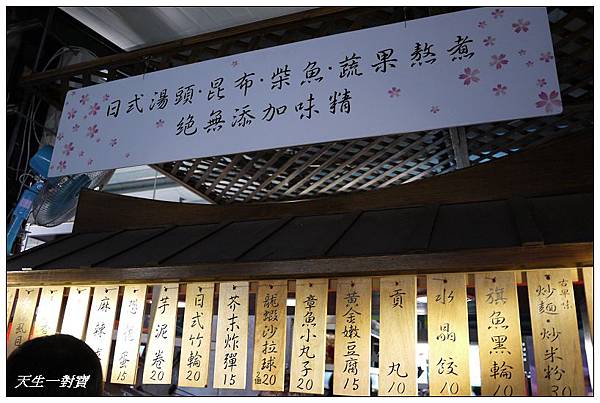 日式湯頭·昆布·柴魚·蔬果熬煮
絕無添加味精
麻辣
恐龍蛋 15
芋泥卷 20
日式竹輪 20
芥末炸彈 15
龍蝦沙拉球 2個20
章魚小丸子 20
黃金嫩豆腐 15
貢丸 10
水晶餃 10
旗魚黑輪 10
古早味
炒麵 炒米粉 30
天生一對寶